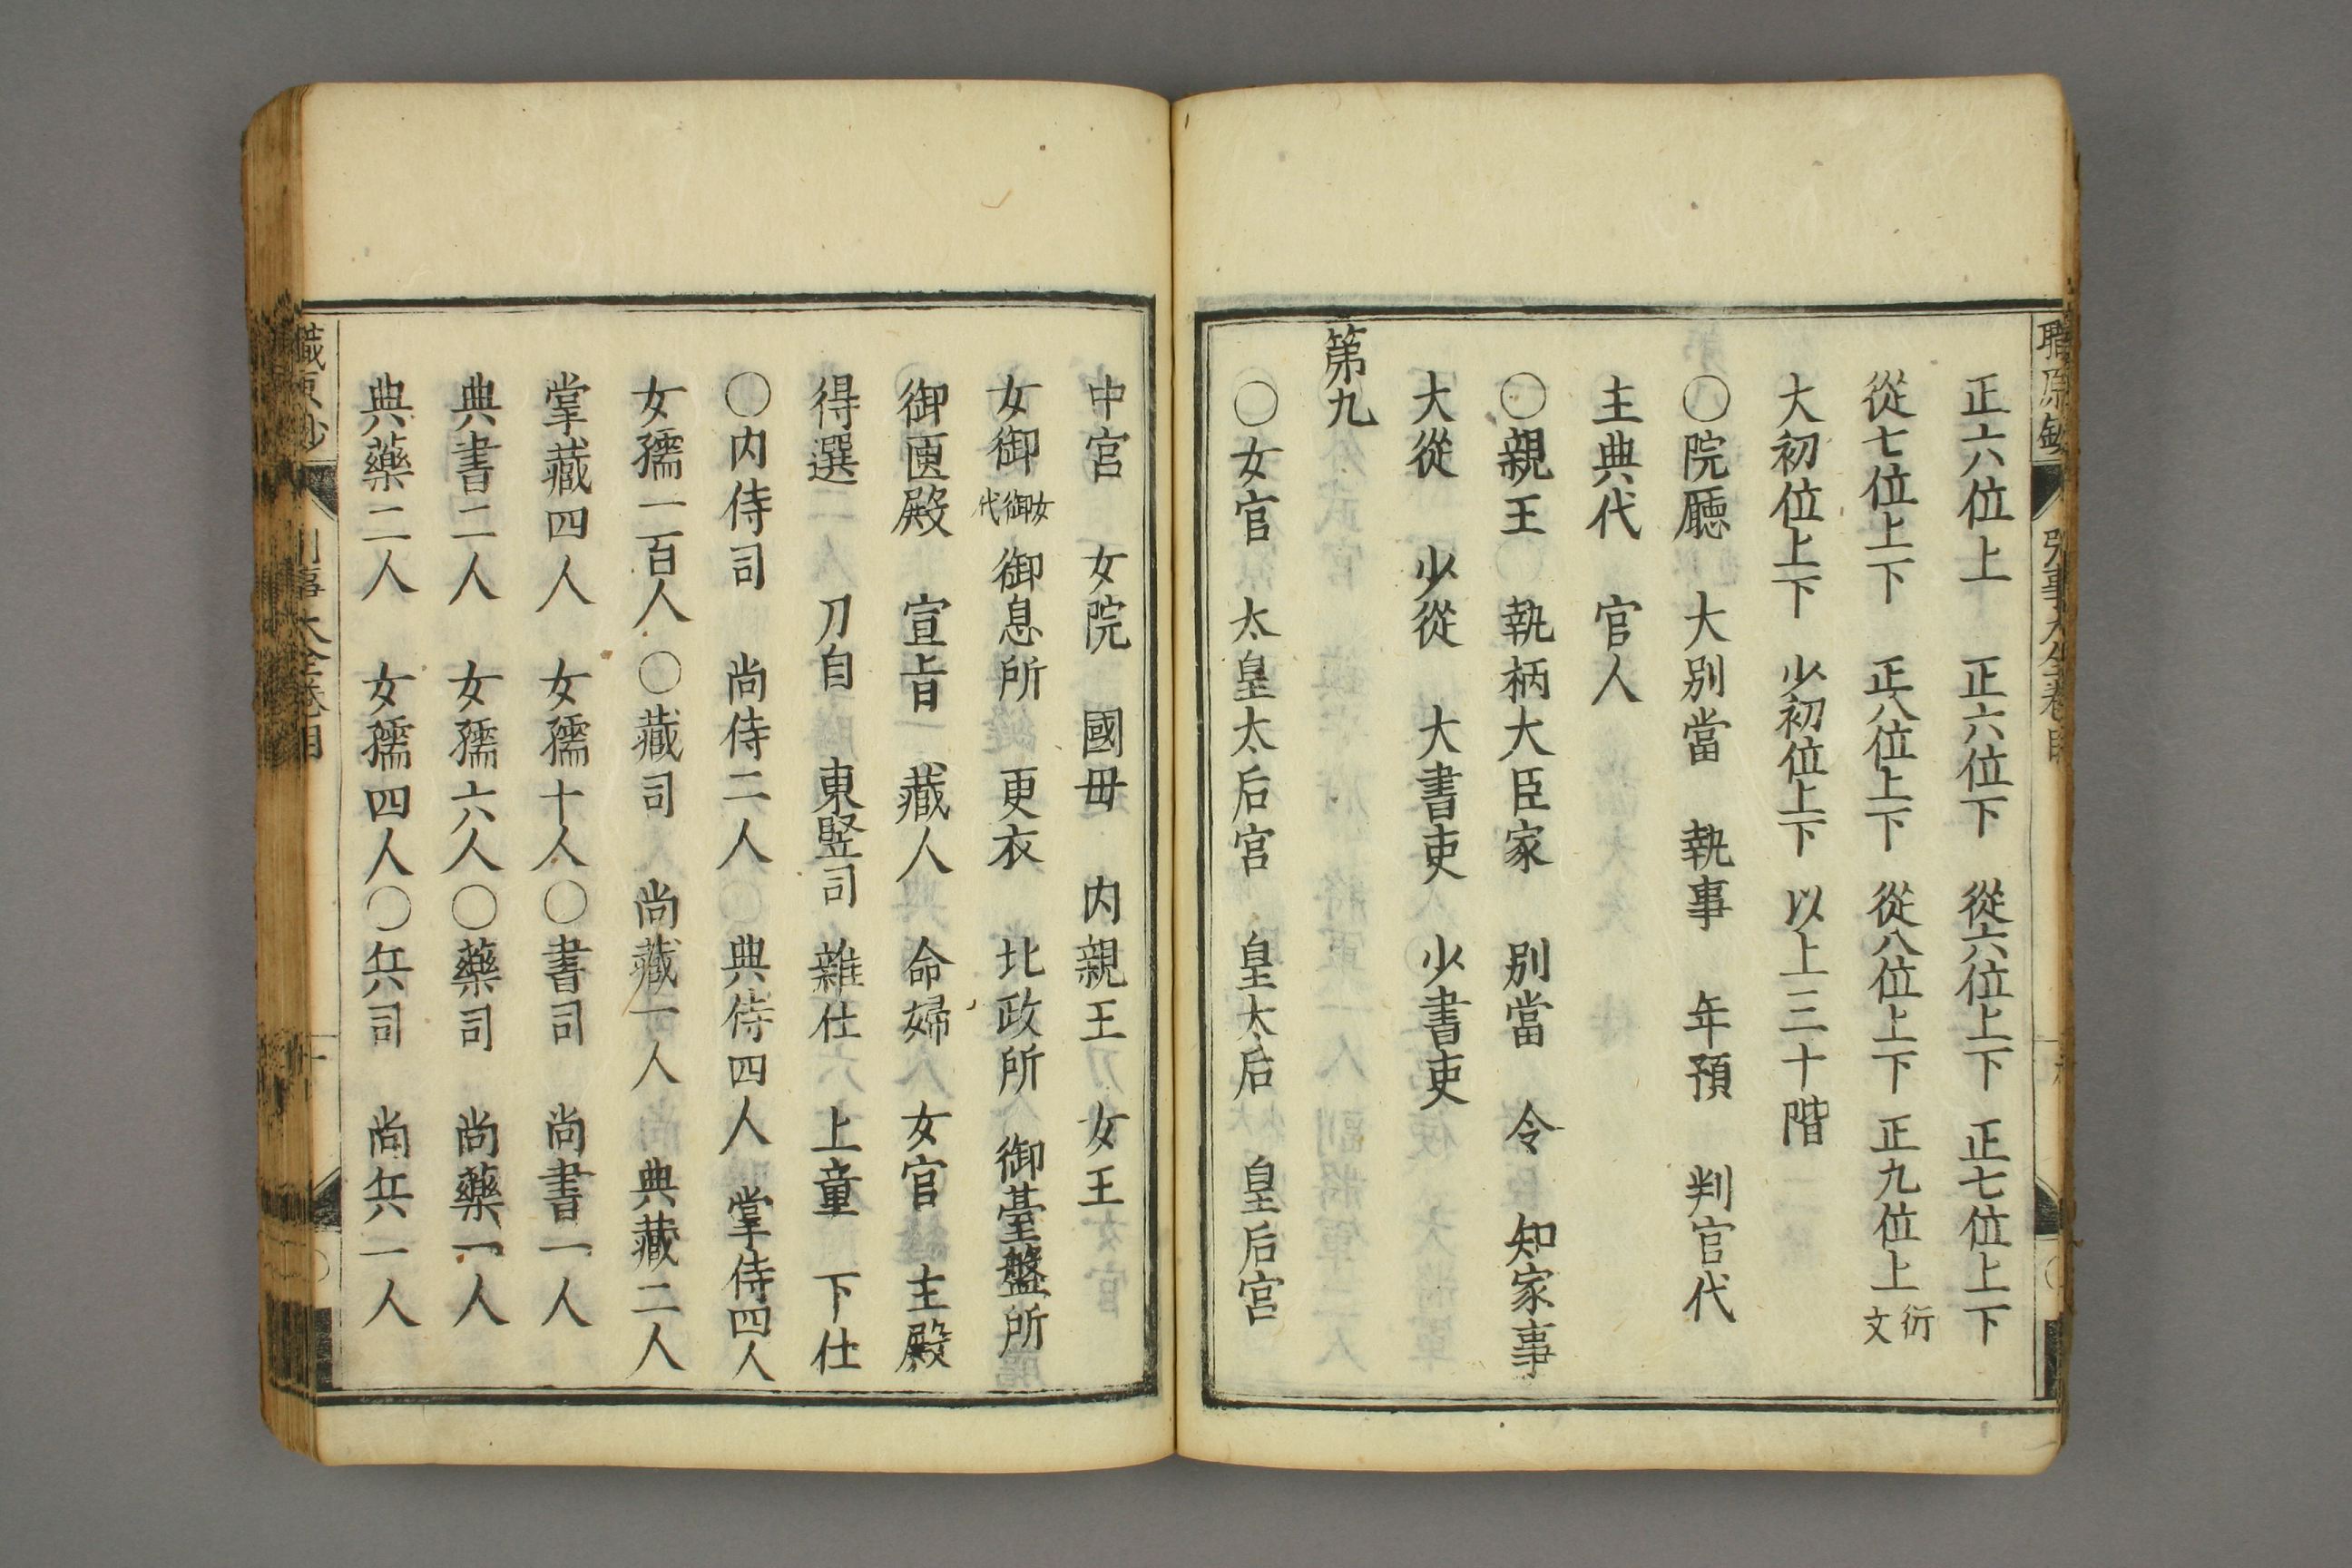 正六位上 正六位下 從六位上下 正七位上下
從七位上下 正八位上下 從八位上下 正九位上 衍文
大初位上下 少初位上下 以上三十階
○院廳 大別當 執事 年預 判官代
主典代 官人
○親王 執柄大臣家 別當 令 知家事
大從 少從 大書吏 少書吏
第九
○女官 太皇太后宮 皇太后 皇后宮
中宮 女院 國母 内親王 女王
女御 女御代 御息所 更衣 北政所 御臺盤所
御匣殿 宣旨 藏人 命婦 女官 主殿
得選 刀自 東豎司 雜仕 上童 下仕
○内侍司 尚侍二人 典侍四人 掌侍四人
女孺一百人 ○藏司 尚藏一人 典藏二人
掌藏四人 女孺十人○書司 尚書一人
典書二人 女孺六人○藥司 尚藥一人
典藥二人 女孺四人○兵司 尚兵一人